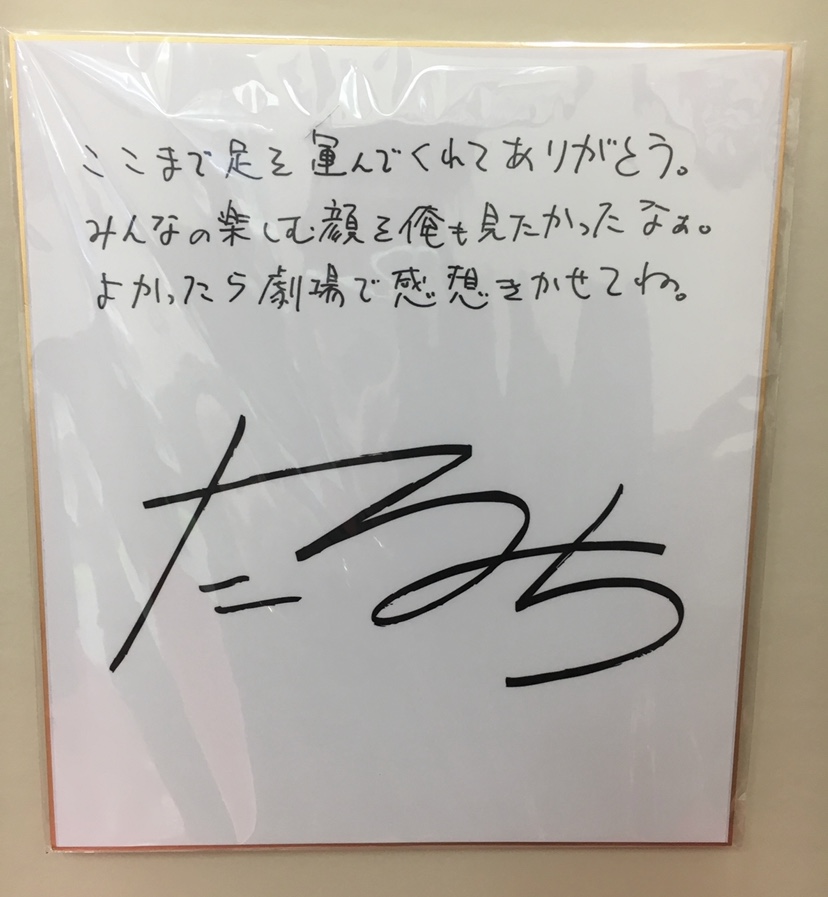 ここまで足を運んでくれてありがとう。
みんなの楽しむ顔を俺も見たかったなぁ。
よかったら劇場で感想きかせてね。
たるち